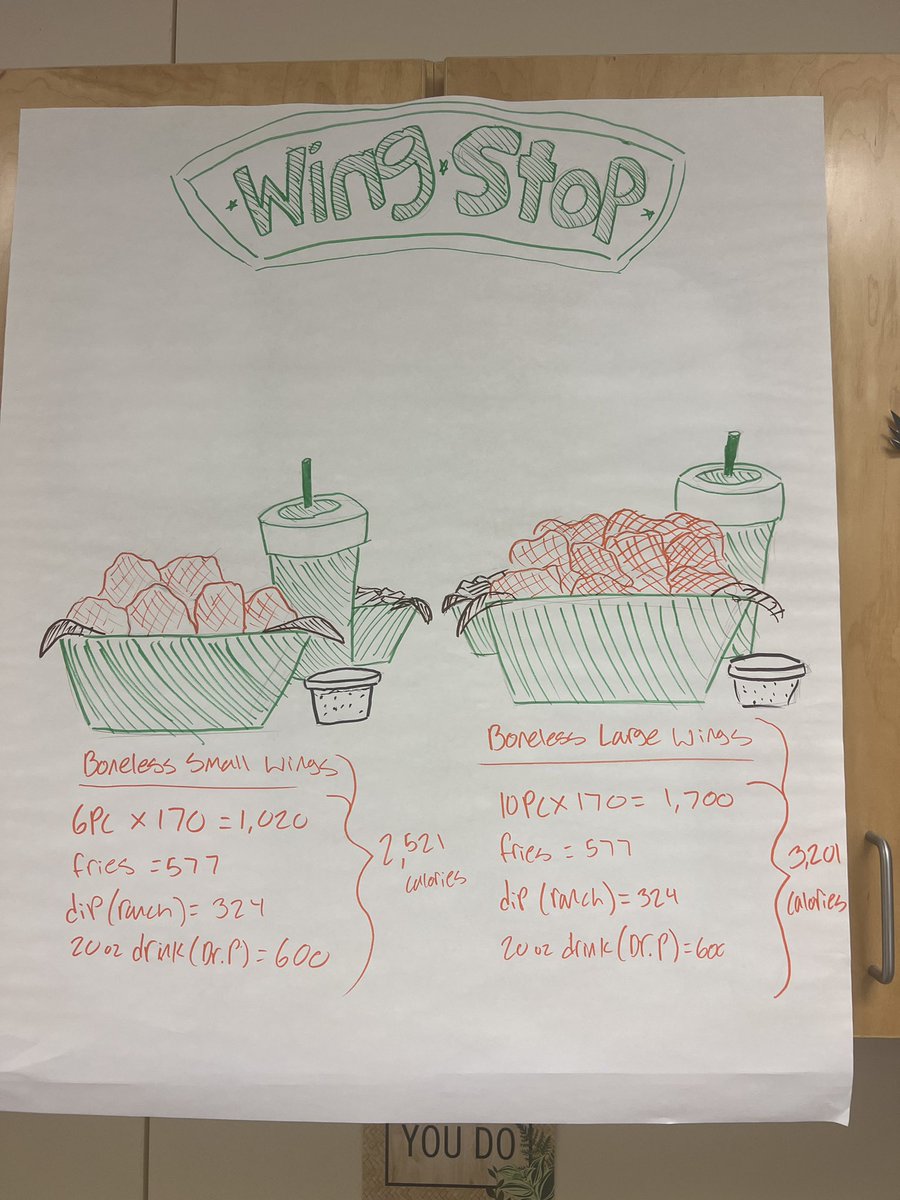 Wing Stop
Boneless Small Wings
6PC x 170 = 1,020
fries = 577
dip (ranch) = 324
20 oz drink (Dr.P) = 600
2,521
calories
Boneless Large Wings
10PC x 170 = 1,700
fries = 577
dip (ranch) = 324
20 oz drink (Dr.P) = 600
3,201
calories
YOU DO